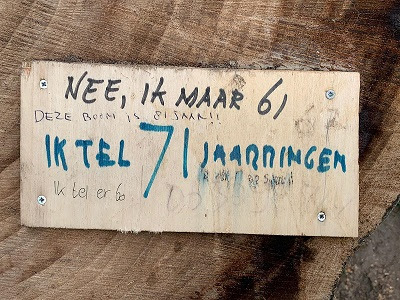 NEE, IK MAAR 61
DEZE BOOM IS 81 JAAR!!
IK TEL 71 JAARRINGEN
Ik tel er 60